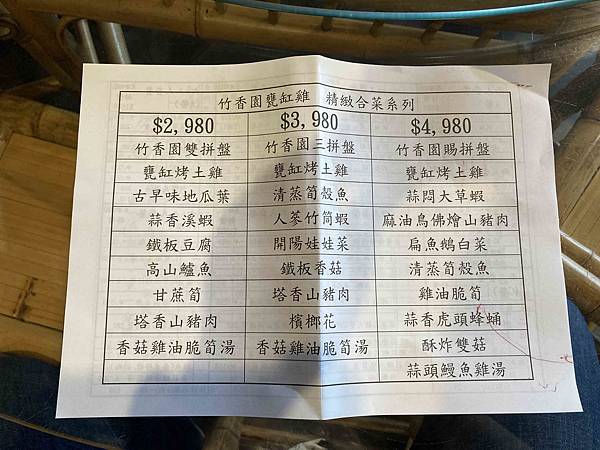 竹香園甕缸雞　精緻合菜系列
$2,980 $3,980 $4,980
竹香園雙拼盤 竹香園三拼盤 竹香園賜拼盤
甕缸烤土雞 甕缸烤土雞 甕缸烤土雞
古早味地瓜葉 清蒸筍殼魚 蒜悶大草蝦
蒜香溪蝦 人蔘竹筒蝦 麻油鳥佛燴山豬肉
鐵板豆腐 開陽娃娃菜 扁魚鵝白菜
高山鱸魚 鐵板香菇 清蒸筍殼魚
甘蔗筍 塔香山豬肉 雞油脆筍
塔香山豬肉 檳榔花 蒜香虎頭蜂蛹
香菇雞油脆筍湯 香菇雞油脆筍湯 酥炸雙菇
蒜頭鰻魚雞湯